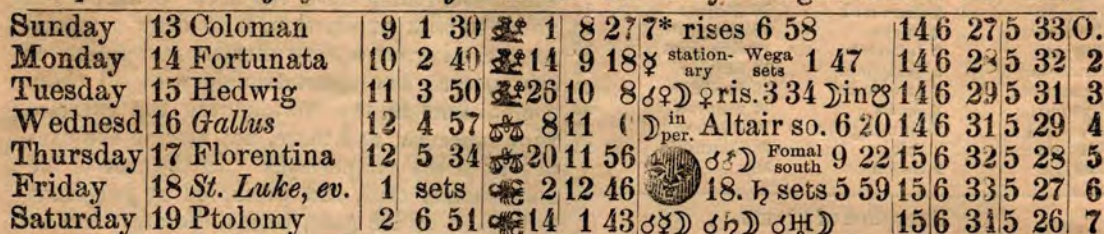 Sunday 13 Coloman 9 1 30 ♍ 1 8 27 7* rises 6 58 14 6 27 5 33 O.
Monday 14 Fortunata 10 2 40 ♍ 14 9 18 ☿ station-ary Wega sets 1 47 14 6 28 5 32 2
Tuesday 15 Hedwig 11 3 50 ♍ 26 10 8 ☌♀☽ ♀ ris. 3 34 ☽ in ☋ 14 6 29 5 31 3
Wednesd 16 Gallus 12 4 57 ♎ 8 11 ☽ in per. Altair so. 6 20 14 6 31 5 29 4
Thursday 17 Florentina 12 5 34 ♎ 20 11 56 ☌♂☽ Fomal south 9 22 15 6 32 5 28 5
Friday 18 St. Luke, ev. 1 sets ♏ 2 12 46 18. ♄ sets 5 59 15 6 33 5 27 6
Saturday 19 Ptolomy 2 6 51 ♏ 14 1 43 ☌☿☽ ☌♄☽ ☌♅☽ 15 6 34 5 26 7